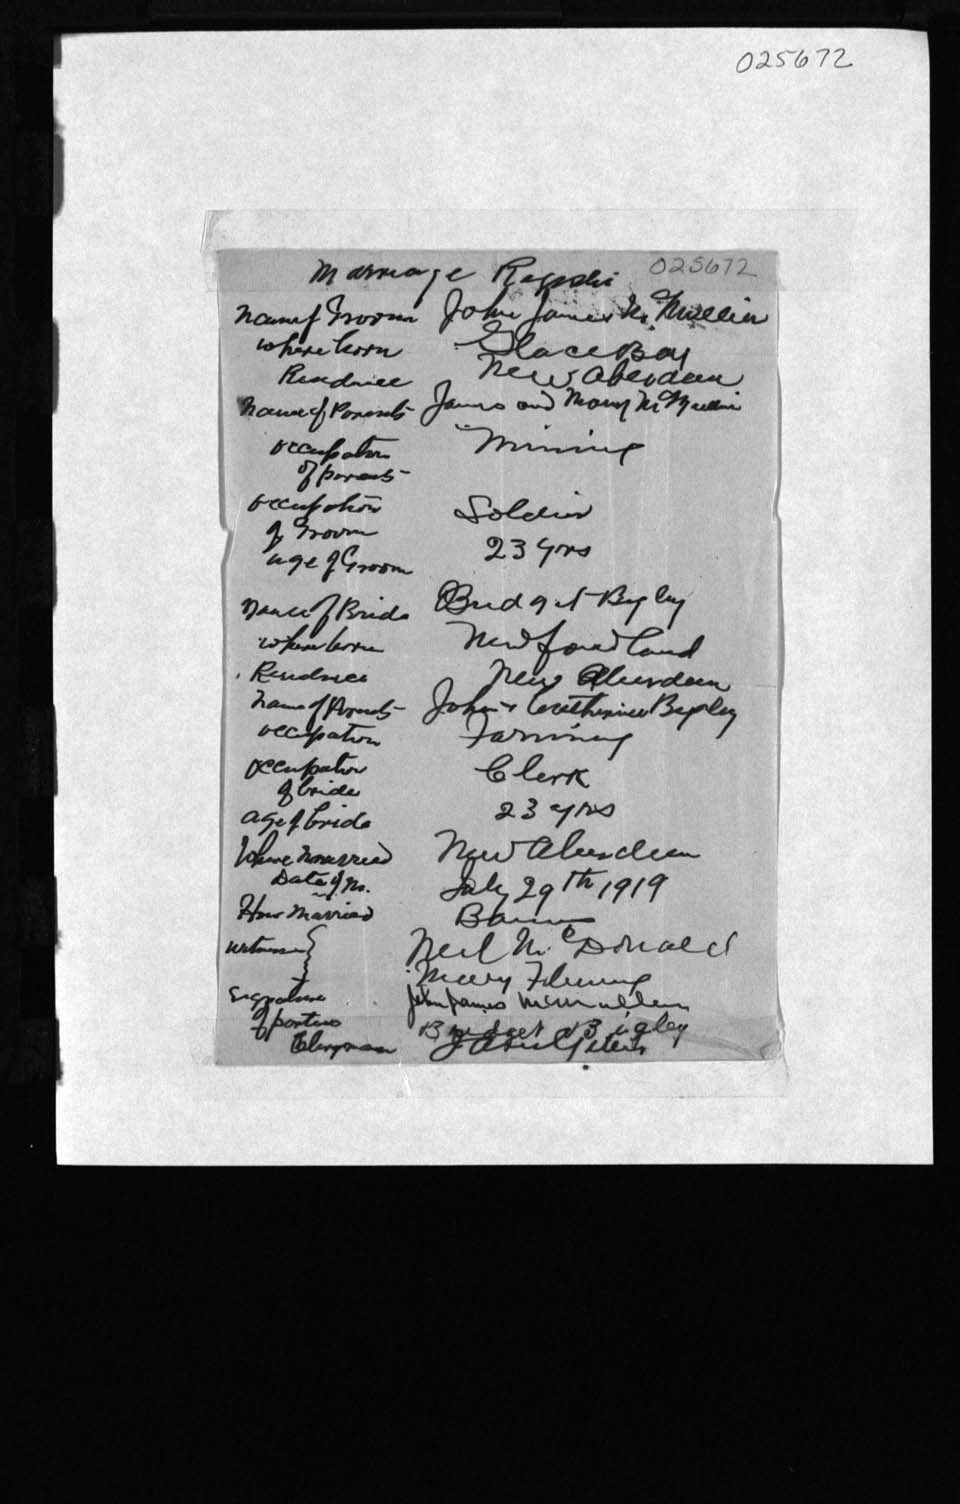 025672
Marriage Register 025672
Name of Groom John James McMullin
where born Glace Bay
Residence New Aberdeen
Name of Parents James and Mary McMullin
occupation Mining
of parents
occupation Soldier
of Groom
age of Groom 23 yrs
Name of Bride Bridget Bigley
where born Newfoundland
Residence New Aberdeen
Name of Parents John & Catherine Bigley
occupation Farming
occupation Clerk
of bride
age of bride 23 yrs
Where Married New Aberdeen
Date of M. July 29th 1919
How Married Banns
witness Neil McDonald
Mary Fleming
Signature John James McMullen
of parties Bridget Bigley
Clergyman